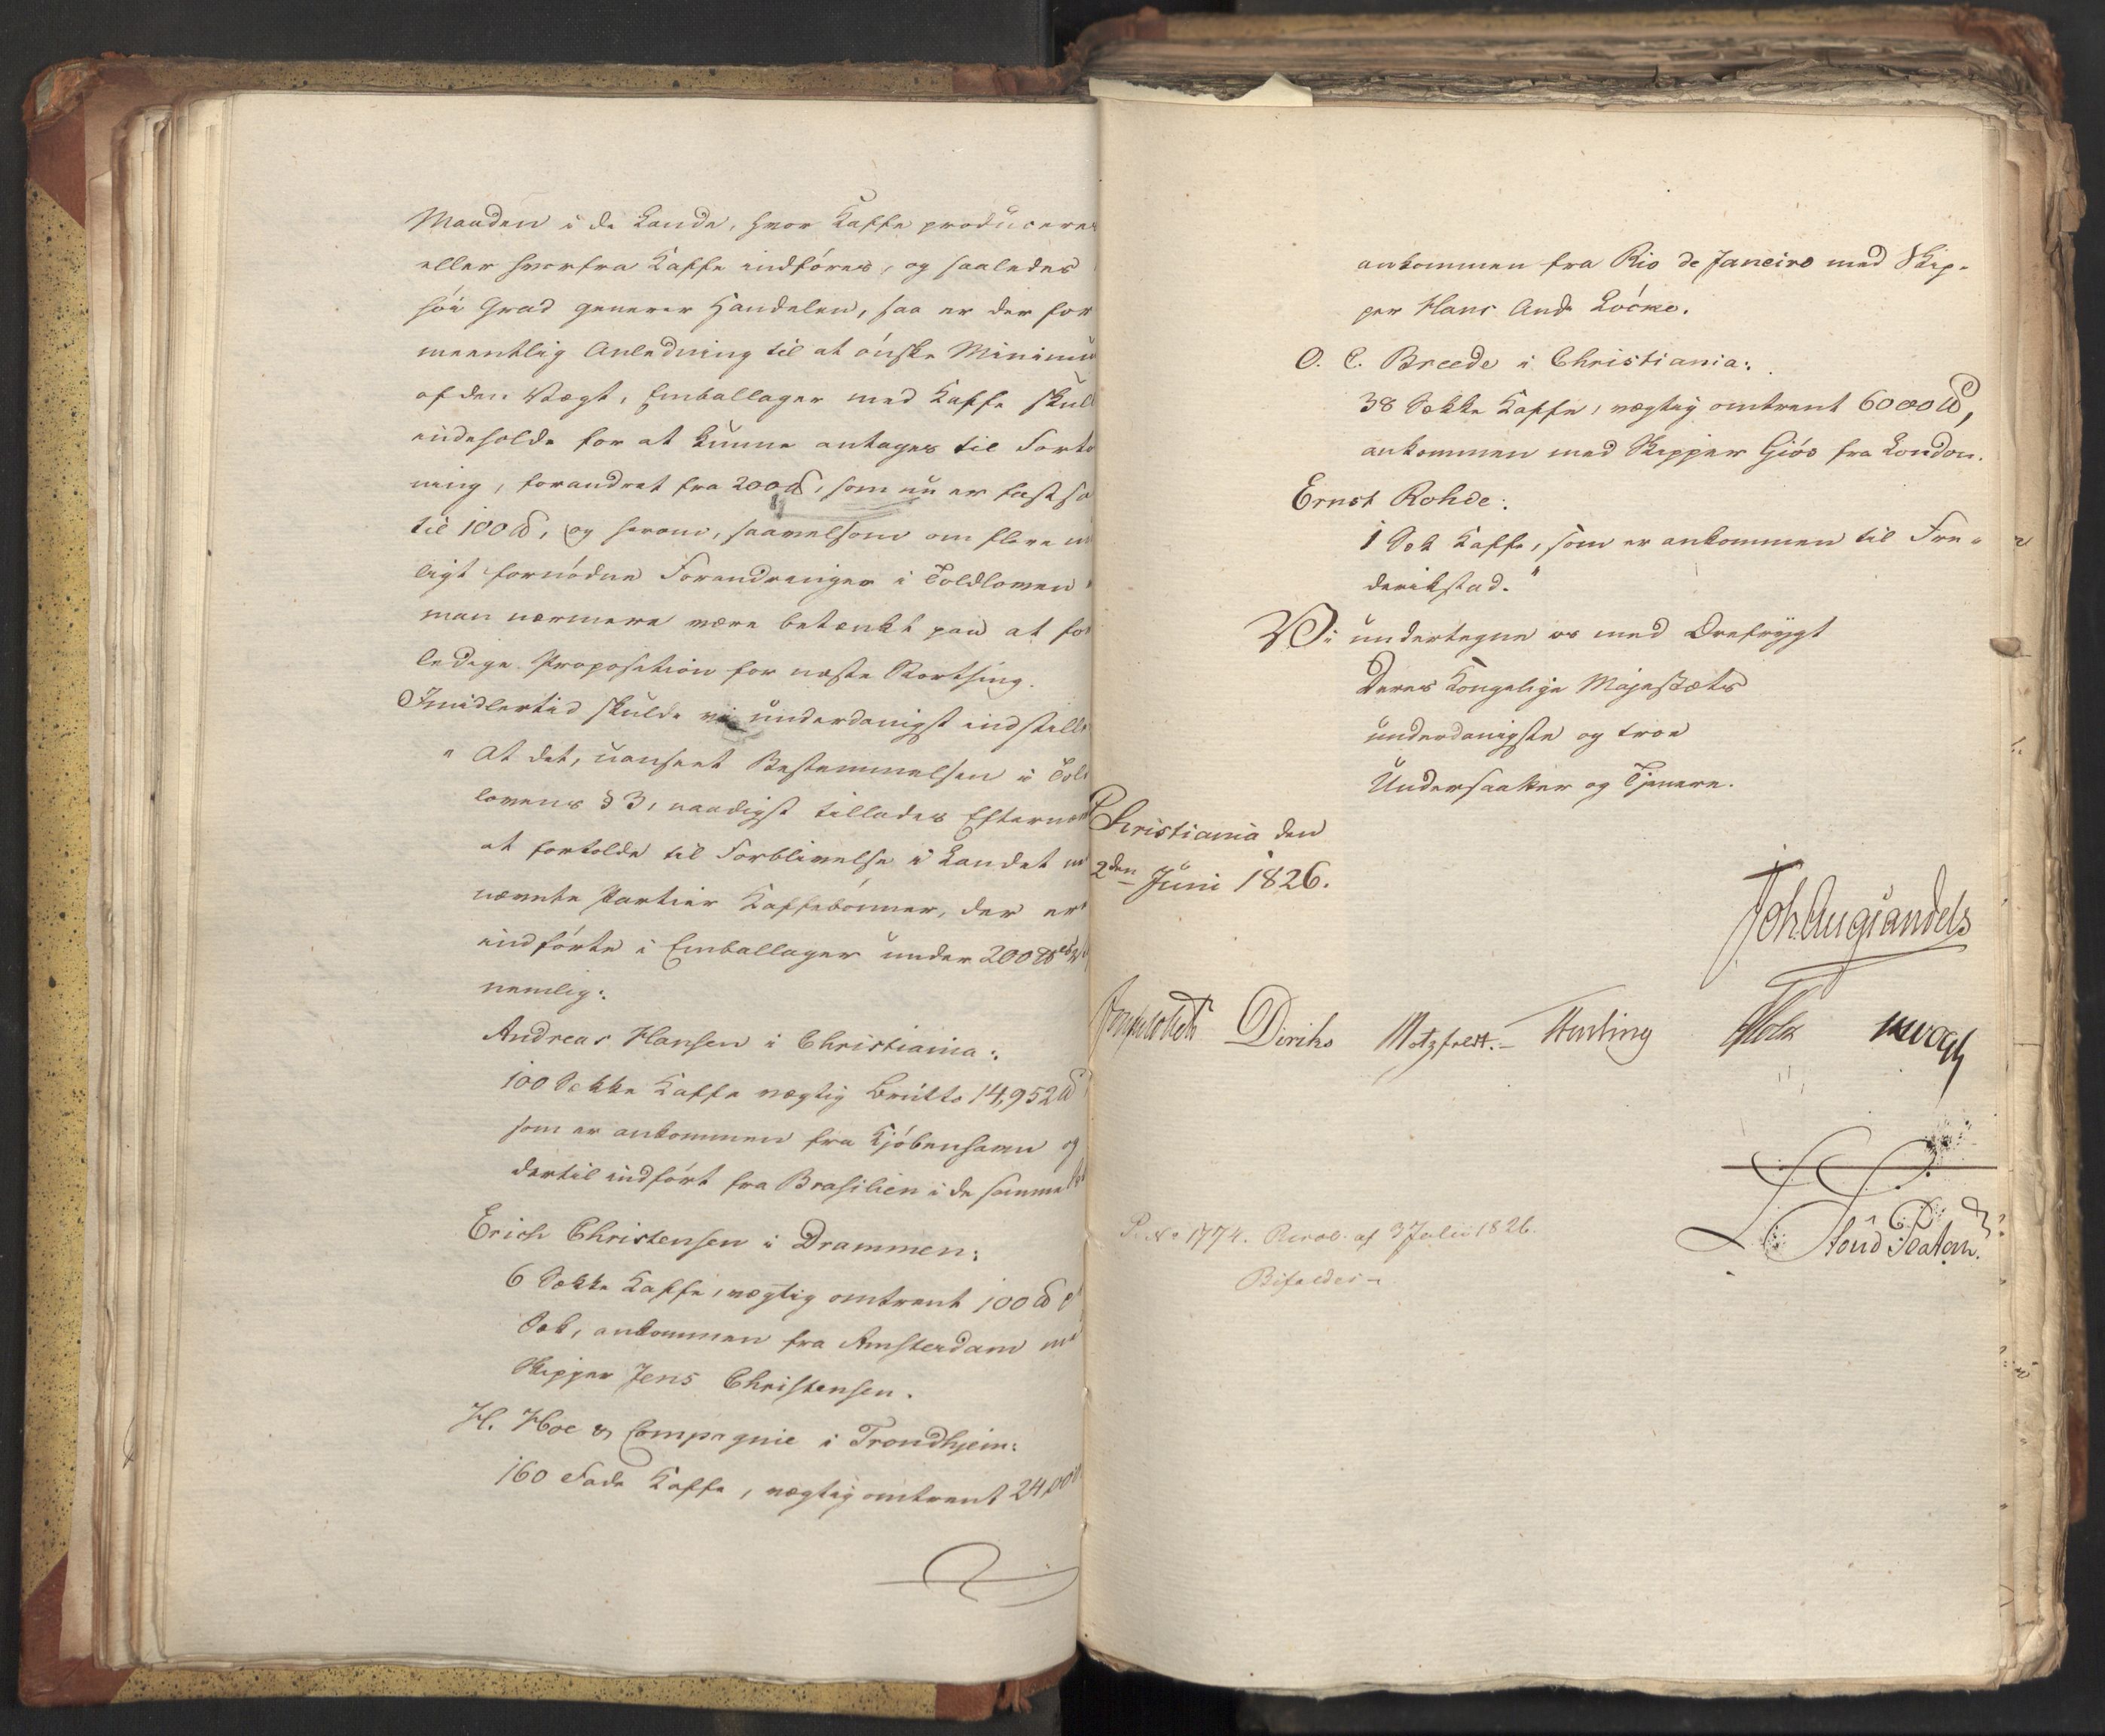 Maaden i de Lande, hvor Kaffe produceres
eller hvorfra Kaffe indføres, og saaledes
høi Grad generer Handelen, saa er der for
meentlig Anledning til at ønske Minimu
af den Vægt, Emballager med Kaffe skul
indeholde for at kunne antages til Forto
ning, forandret fra 200 ℔, som nu er fastsa
til 100 ℔, og herom, saavelsom om flere
ligt fornødne Forandringer i Toldloven
man nærmere være betænkt paa at for
ledige Proposition for næste Storthing.
Imidlertid skulde vi underdanigst indstille
" At det, uanseet Bestemmelsen i Told
lovens § 3, naadigst tillades Efternæv
at fortolde til Forblivelse i Landet
nævnte Partier Kaffebønner, der ere
indførte i Emballager under 200 ℔
nemlig:
Andreas Hansen i Christiania:
100 Sække Kaffe vægtig Brutto 14,952 ℔
som er ankommen fra Kjøbenhavn og
dertil indført fra Brasilien i de samme
Erich Christensen i Drammen:
6 Sække Kaffe, vægtig omtrent 100 ℔
Sæk, ankommen fra Amsterdam
Skipper Jens Christensen.
H. Hoe & Compagnie i Trondhjem:
160 Fade Kaffe, vægtig omtrent 24,000
ankommen fra Rio de Janeiro med Skip-
per Hans And.
O. C. Breede i Christiania:
38 Sække Kaffe, vægtig omtrent 6000 ℔,
ankommen med Skipper Giøs fra London.
Ernst Rohde:
1 Sæk Kaffe, som er ankommen til Fre-
derikstad."
Vi undertegne os med Ærefrygt
Deres Kongelige Majestæts
underdanigste og troe
Undersaatter og Tjenere.
Christiania den
2den Juni 1826.
Joh. Aug. Sandels
Diriks Motzfeldt. Holst
P. No 1774. Resol. af 3 Julii 1826.
Bifaldes